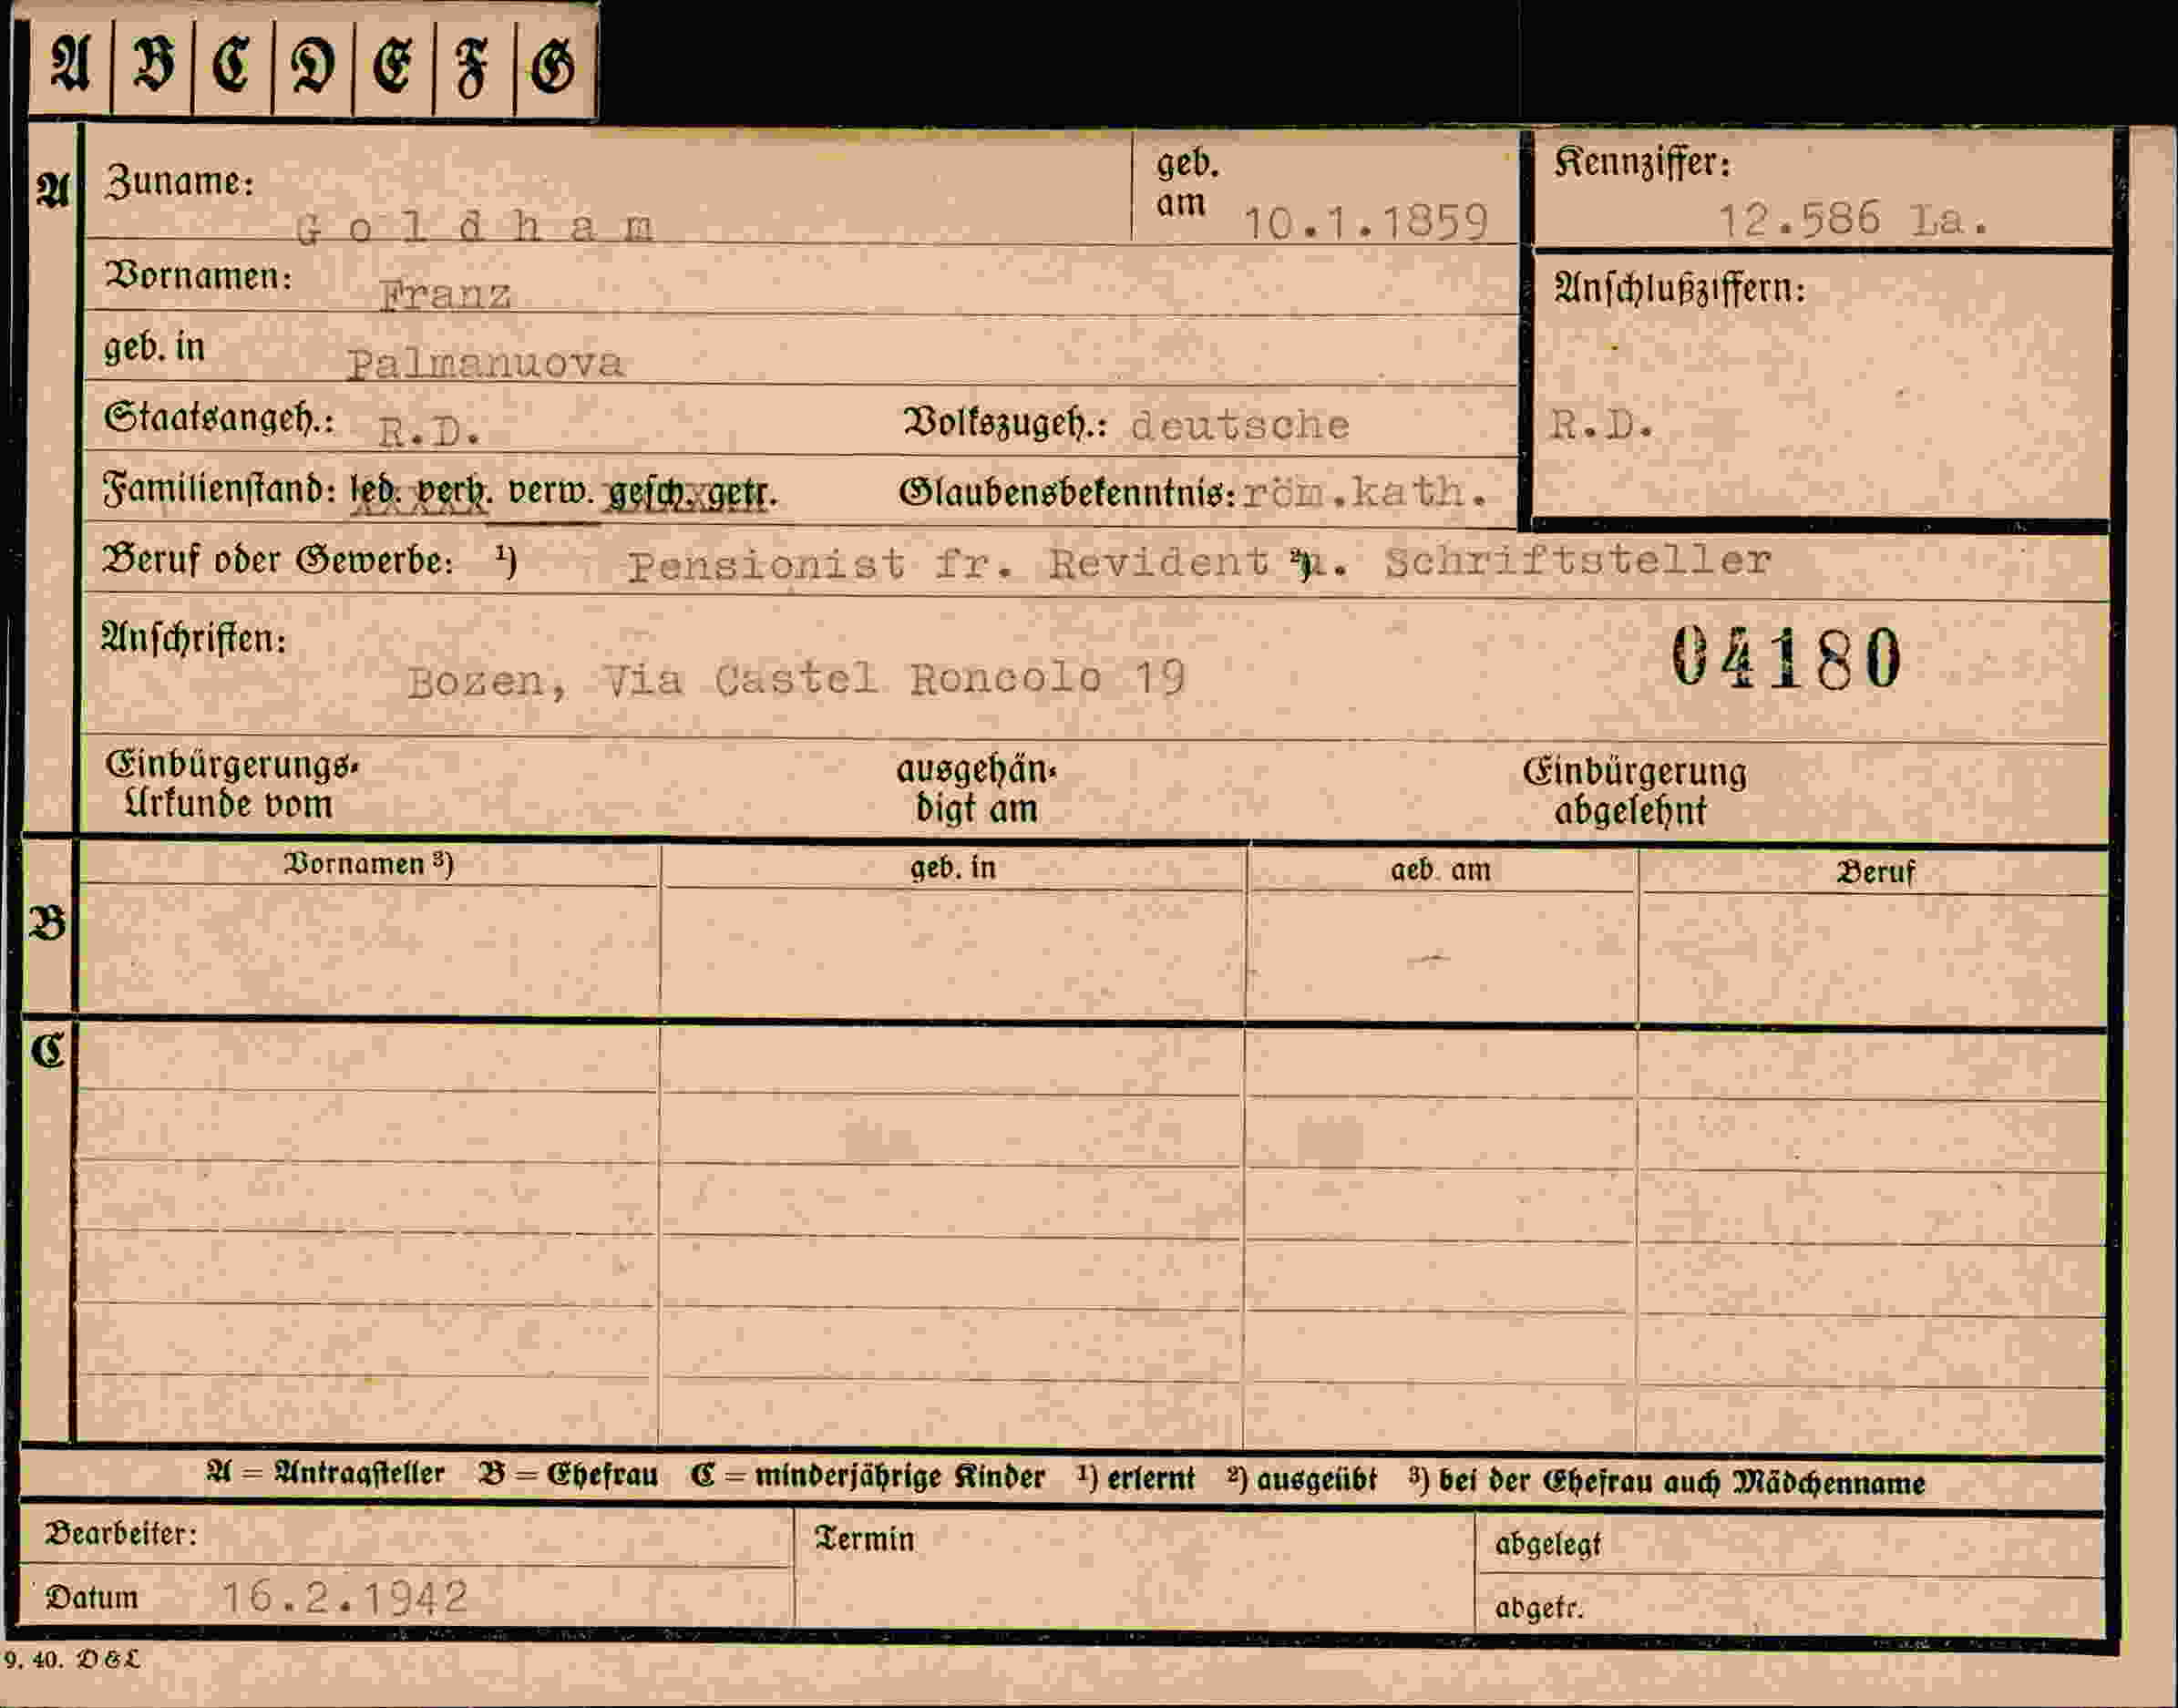 A B C D E F G
A Zuname: Goldham geb. am 10.1.1859 Kennziffer: 12.586 La.
Vornamen: Franz Anschlußziffern:
geb. in Palmanuova
Staatsangeh.: R.D. Volkszugeh.: deutsche R.D.
Familienstand: led. verh. verw. gesch. getr. Glaubensbekenntnis: röm.kath.
Beruf oder Gewerbe: ¹) Pensionist fr. Revident u. Schriftsteller
Anschriften: 04180
Bozen, Via Castel Roncolo 19
Einbürgerungs- ausgehän- Einbürgerung
Urkunde vom digt am abgelehnt
Vornamen ³) geb. in geb. am Beruf
B
C
A = Antragsteller B = Ehefrau C = minderjährige Kinder ¹) erlernt ²) ausgeübt ³) bei der Ehefrau auch Mädchenname
Bearbeiter: Termin abgelegt
Datum 16.2.1942 abgetr.
9. 40. D&L